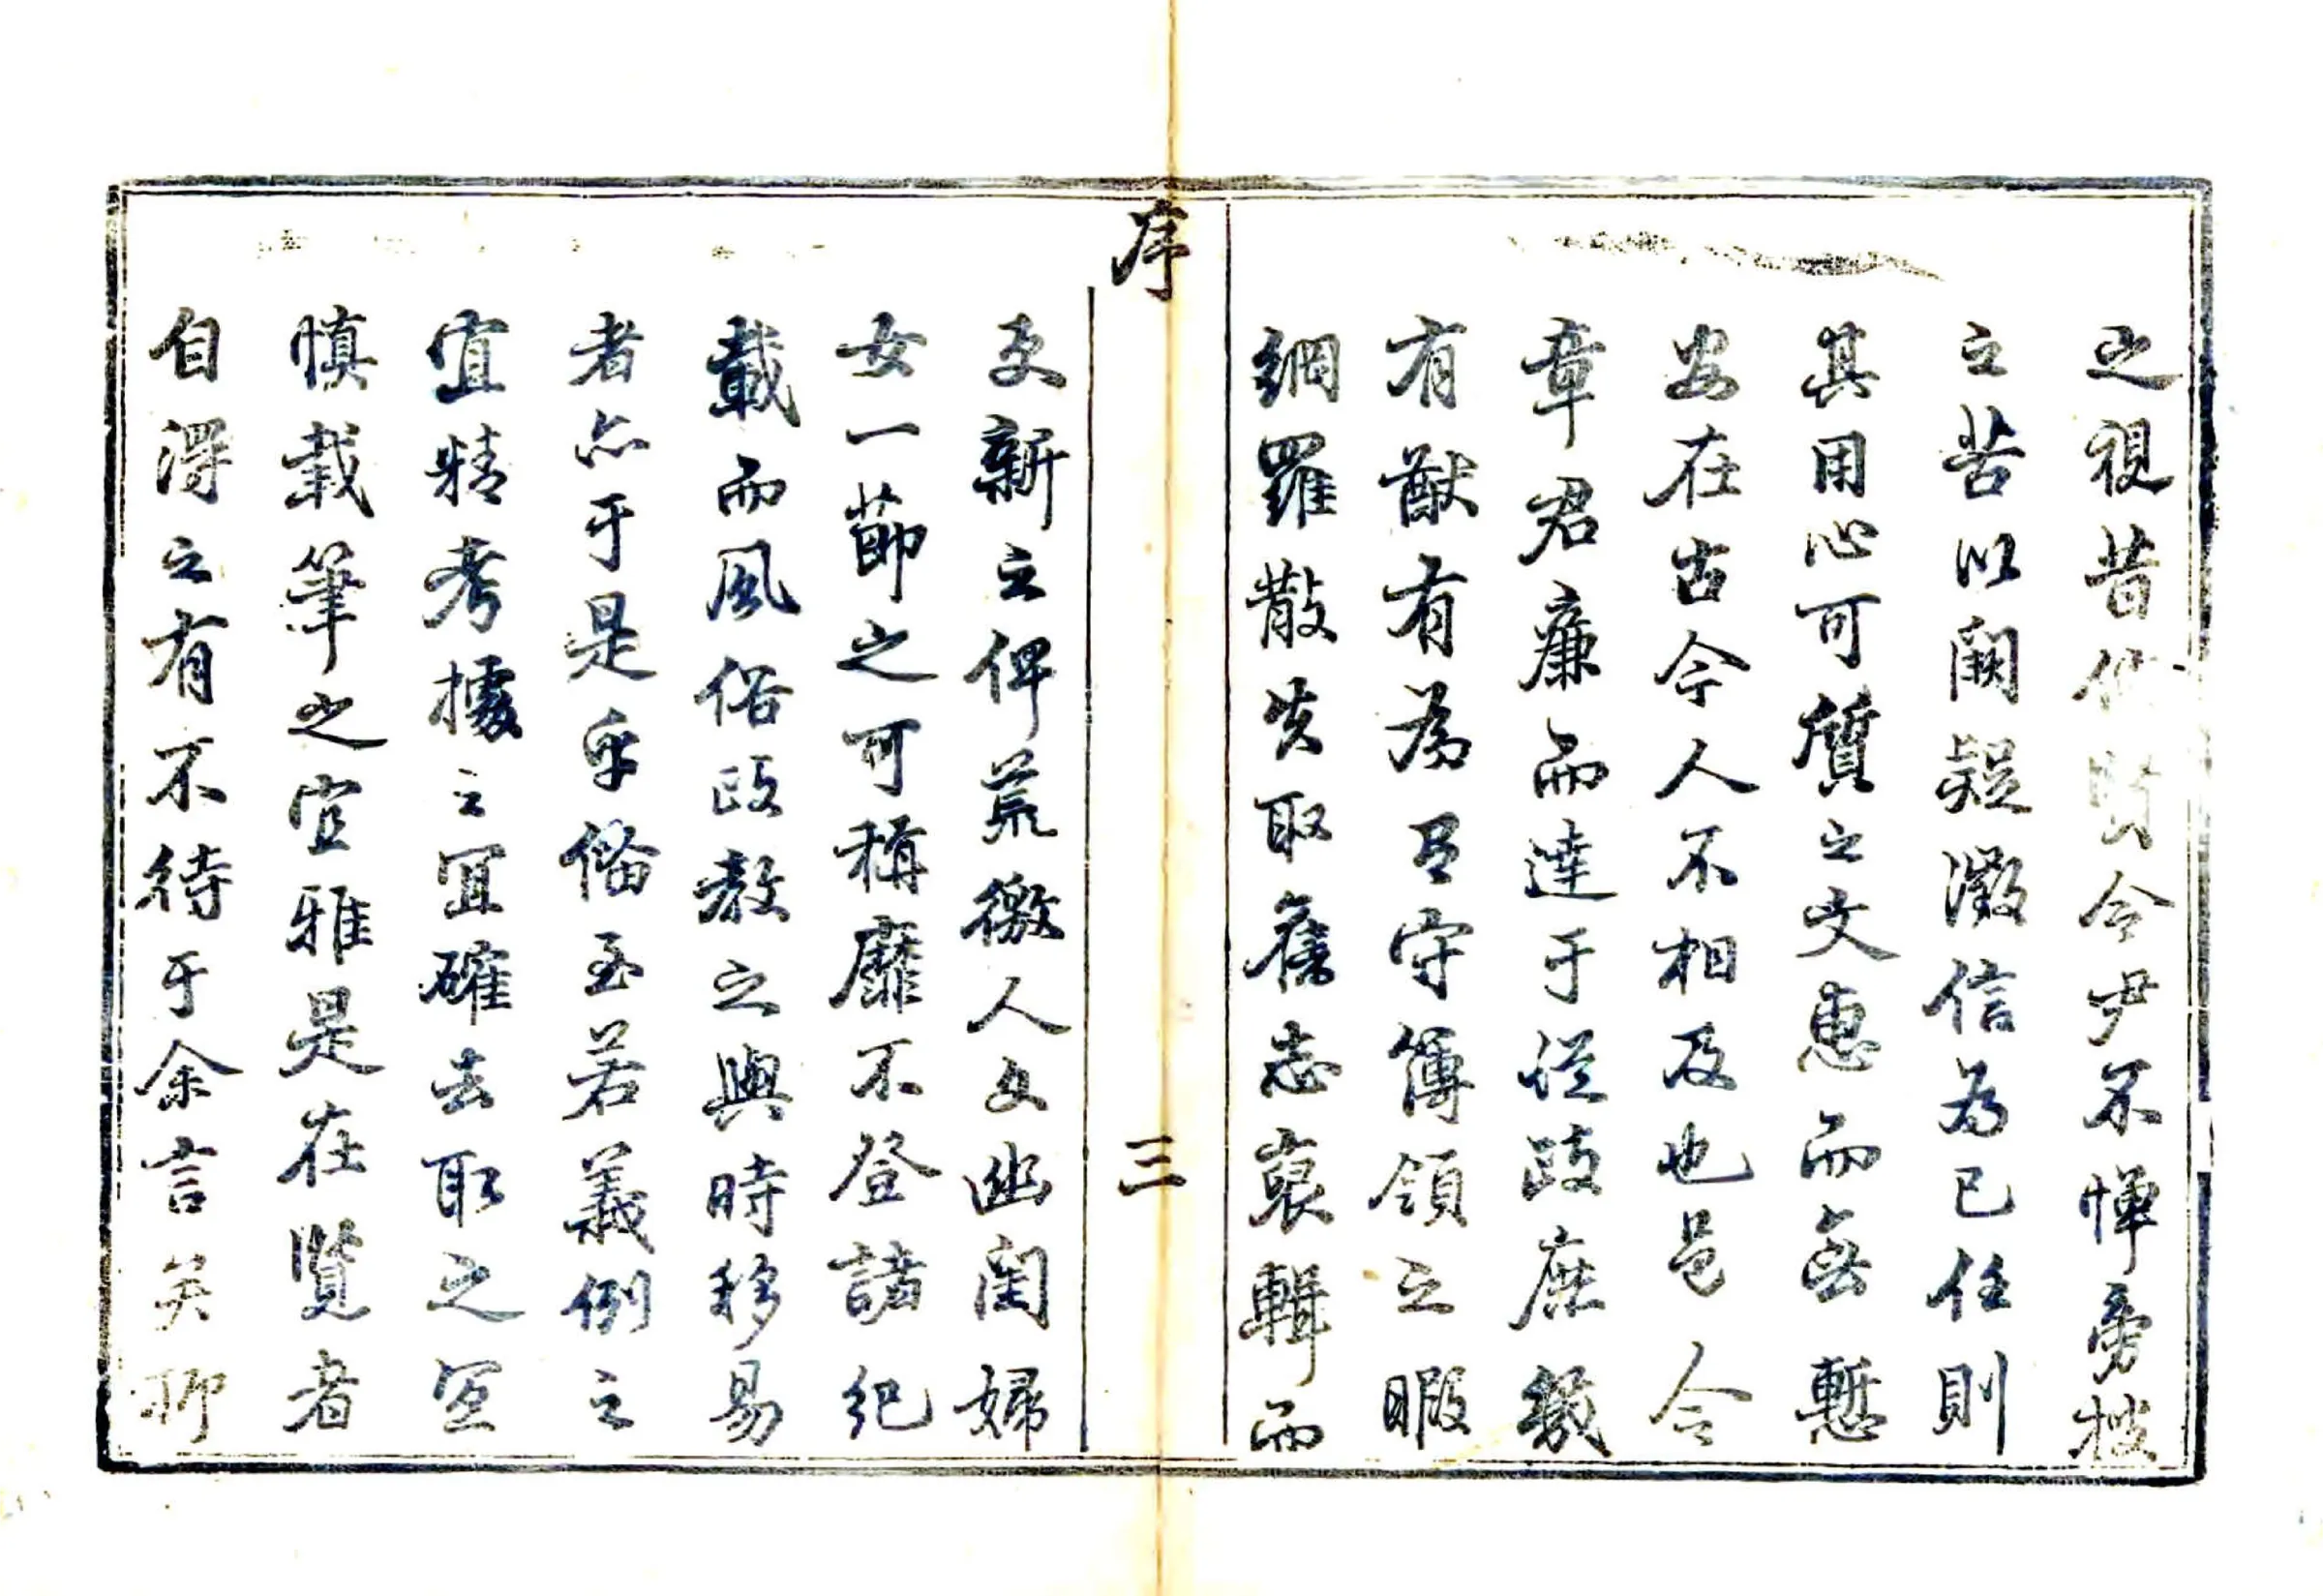 之視昔俾賢令尹不憚旁搜
之苦以闕疑徵信為己任則
其用心可質之文惠而無慙
安在古今人不相及也邑令
章君廉而達于從政庶幾
有猷有為且守簿領之暇
網羅散失取舊志裒輯而
序
三
更新之俾荒徼人文幽閨婦
女一節之可稱靡不登諸紀
載而風俗政教之與時移易
者亦于是乎備至若義例之
宜精考據之宜確去取之宜
慎載筆之宜雅是在覽者
自得之有不待于余言矣聊